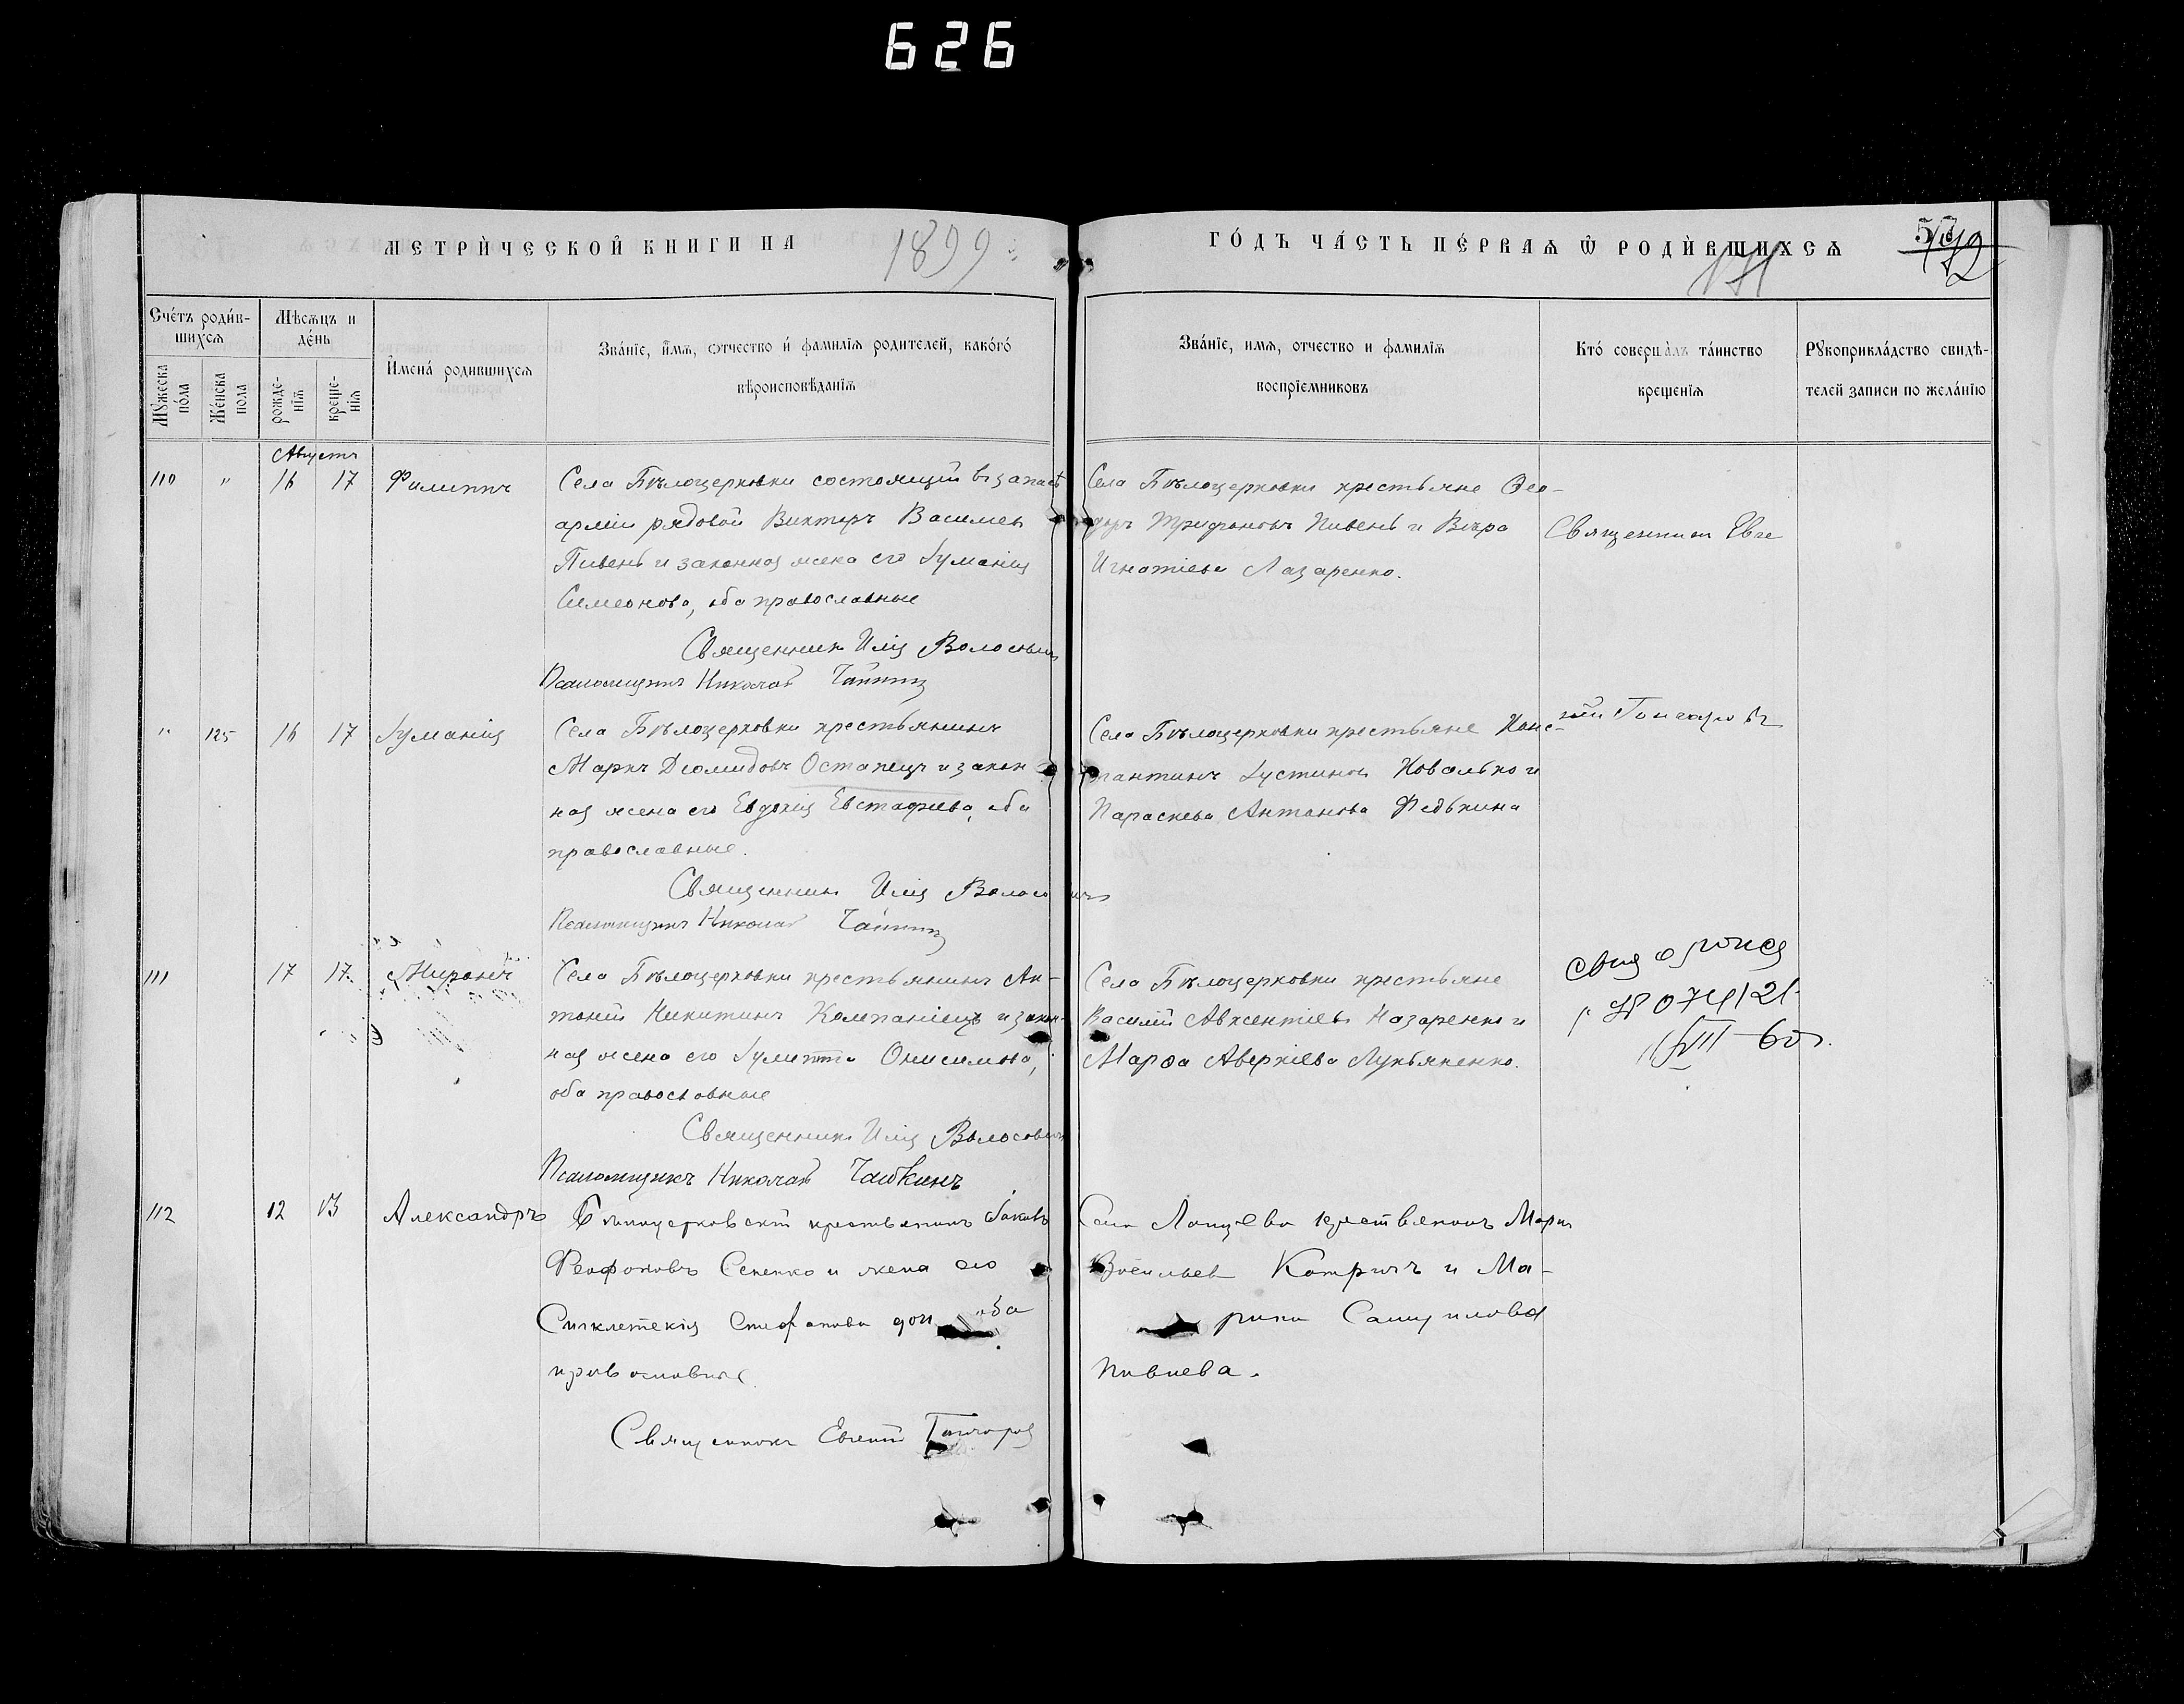 626
МЕТРИ́ЧЕСКОЙ КНИГИ НА 1899
ГО́ДЪ ЧА́СТЬ ПЕ́РВАѦ Ѿ РОДИ́ВШИХСѦ
171
172
Сче́тъ роди́в-
шихсѧ
Мꙋ́жеска по́ла
Же́нска пола
Мѣсѧцъ и де́нь
рожде-
нїѧ
креще-
нїѧ
И҆мена́ родившихсѧ
Зва́нїе, и҆́мѧ, отчество и҆ фамилїѧ родителей, како́гѡ
вѣроисповѣданїѧ
Зва́нїе, имѧ, отчество и фамилїѧ
воспрїемниковъ
Кто́ соверша́лъ та́инство
крещенїѧ
Рꙋкоприкла́дство свидѣ-
телей записи по жела́нїю
Августъ
110 " 16 17 Филиппъ
Села Бѣлоцерковки состоящій въ запасѣ
арміи рядовой Викторъ Васильевъ
Пивень и законная жена его Іуліанія
Симеонова, оба православные
Священникъ Илія Волосовичъ
Псаломщикъ Николай
Села Бѣлоцерковки крестьяне Ѳео-
доръ Трифоновъ Пивень и Вѣра
Игнатіева Лазаренко.
Священникъ Евге
" 125 16 17 Іуліанія
Села Бѣлоцерковки крестьянинъ
Маркъ Діомидовъ Остапецъ и закон
ная жена его Евдокія Евстафіева, оба
православные.
Священникъ Илія Волосовичъ
Псаломщикъ Николай
Села Бѣлоцерковки крестьяне Конс-
тантинъ Іустиновъ Ковалько и
Параскева Антонова Федькина
ній Гончаровъ
111 17 17 Миронъ
Села Бѣлоцерковки крестьянинъ Ан-
тоній Никитинъ Компаніецъ и закон-
ная жена его Іулитта Онисимова,
оба православные
Священникъ Илія Волосовичъ
Псаломщикъ Николай
Села Бѣлоцерковки крестьяне
Василій Авксентіевъ Назаренко и
Марѳа Аверкіева Лукьяненко.
112 12 13 Александръ
Бѣлоцерковскій крестьянинъ Іаковъ
Феофановъ Сененко и жена его
Синклитикія Стефанова оба
православные.
Священникъ Евгеній Гончаровъ
Села крестьянинъ Маркъ
Васильевъ и Ма-
рина Самуилова
Пивнева.